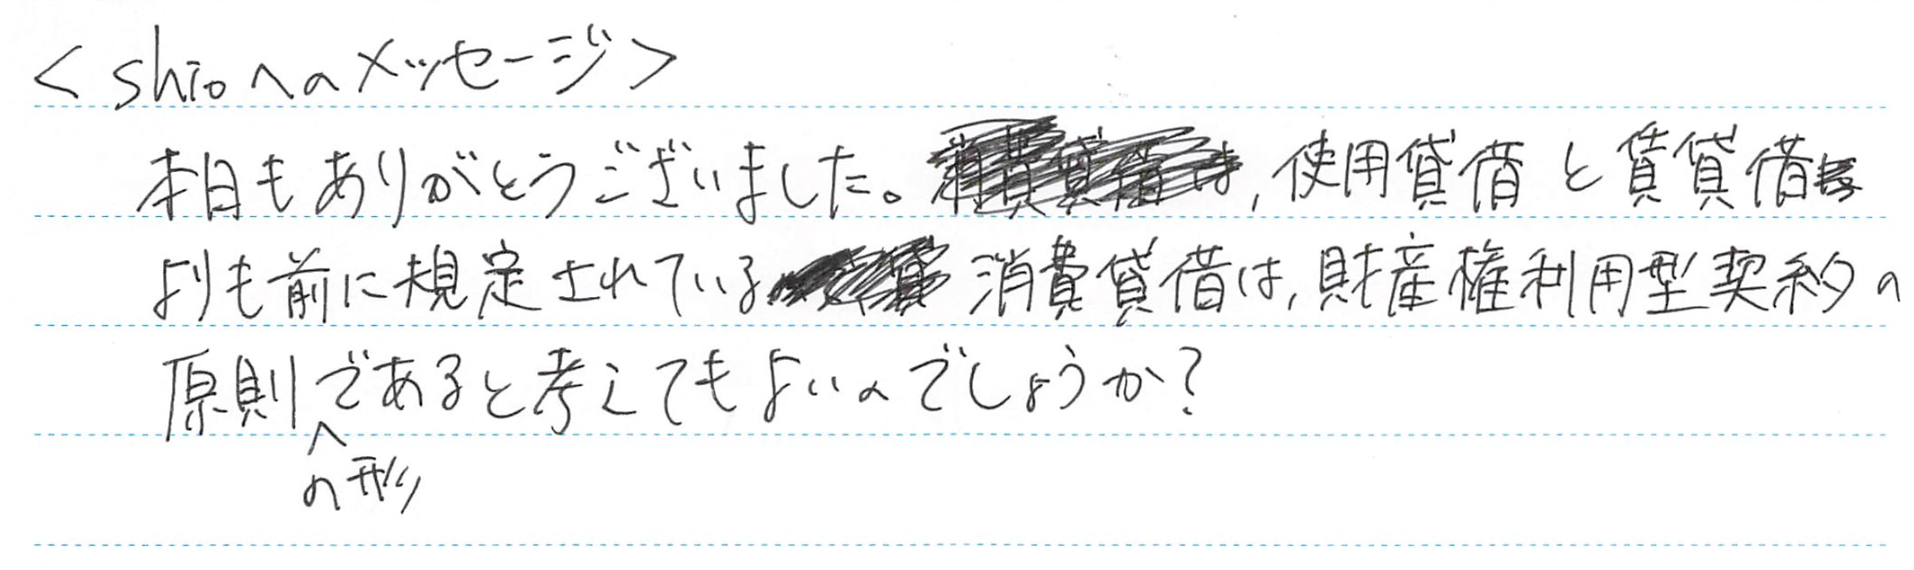 <shioへのメッセージ>
本日もありがとうございました。, 使用貸借と賃貸借
よりも前に規定されている 消費貸借は, 財産権利用型契約の
原則であると考えてもよいのでしょうか?
の形